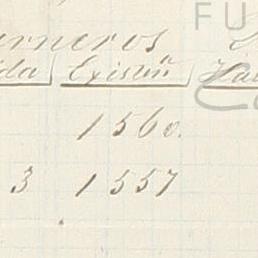 FU
rneros
da Existñ Ha
1560.
3 1557